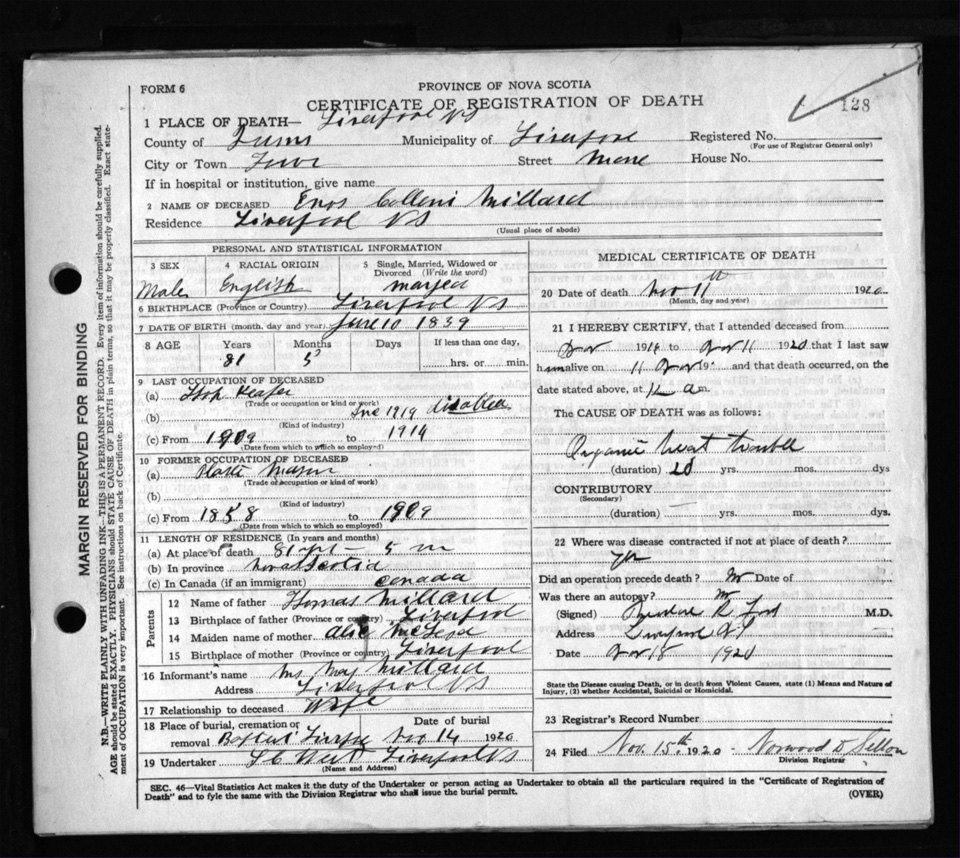 FORM 6
PROVINCE OF NOVA SCOTIA
CERTIFICATE OF REGISTRATION OF DEATH
128
1 PLACE OF DEATH— Liverpool NS
County of Municipality of Liverpool Registered No.
(For use of Registrar General only)
City or Town Town Street Main House No.
If in hospital or institution, give name
2 NAME OF DECEASED Enos Millard
Residence Liverpool NS
(Usual place of abode)
PERSONAL AND STATISTICAL INFORMATION
3 SEX Male
4 RACIAL ORIGIN English
5 Single, Married, Widowed or Divorced (Write the word) married
6 BIRTHPLACE (Province or Country) Liverpool NS
7 DATE OF BIRTH (month, day and year) June 10 1839
8 AGE Years Months Days If less than one day,
81 5 hrs. or min.
9 LAST OCCUPATION OF DECEASED
(a) Shop Keeper
(Trade or occupation or kind of work)
(b) 1919 disabled
(Kind of industry)
(c) From 1909 to 1919
(Date from which to which so employed)
10 FORMER OCCUPATION OF DECEASED
(a) Mason
(Trade or occupation or kind of work)
(b)
(Kind of industry)
(c) From 1858 to 1909
(Date from which to which so employed)
11 LENGTH OF RESIDENCE (In years and months)
(a) At place of death 81 5 m
(b) In province Nova Scotia
(c) In Canada (if an immigrant) Canada
Parents
12 Name of father Thomas Millard
13 Birthplace of father (Province or country) Liverpool
14 Maiden name of mother Alice McLeod
15 Birthplace of mother (Province or country) Liverpool
16 Informant's name Mrs May Millard
Address Liverpool NS
17 Relationship to deceased Wife
18 Place of burial, cremation or removal Baptist Date of burial Nov 14 1920
19 Undertaker West Liverpool NS
(Name and Address)
MEDICAL CERTIFICATE OF DEATH
20 Date of death Nov 11th 1920
(Month, day and year)
21 I HEREBY CERTIFY, that I attended deceased from
to Nov 11 1920 that I last saw
him alive on 11 Nov 19 and that death occurred, on the
date stated above, at m.
The CAUSE OF DEATH was as follows:
Organic heart trouble
(duration) 20 yrs. mos. dys
CONTRIBUTORY
(Secondary)
(duration) yrs. mos. dys.
22 Where was disease contracted if not at place of death?
Did an operation precede death? No Date of
Was there an autopsy? No
(Signed) Ford M.D.
Address Liverpool NS
Date Nov 18 1920
State the Disease causing Death, or in death from Violent Causes, state (1) Means and Nature of
Injury, (2) whether Accidental, Suicidal or Homicidal.
23 Registrar's Record Number
24 Filed Nov. 15th 1920 Norwood D
Division Registrar
SEC. 46—Vital Statistics Act makes it the duty of the Undertaker or person acting as Undertaker to obtain all the particulars required in the "Certificate of Registration of
Death" and to fyle the same with the Division Registrar who shall issue the burial permit.
(OVER)
MARGIN RESERVED FOR BINDING
N.B.—WRITE PLAINLY WITH UNFADING INK—THIS IS A PERMANENT RECORD. Every item of information should be carefully supplied.
AGE should be stated EXACTLY. PHYSICIANS should STATE CAUSE OF DEATH in plain terms, so that it may be properly classified. Exact statement of OCCUPATION is very important. See instructions on back of Certificate.